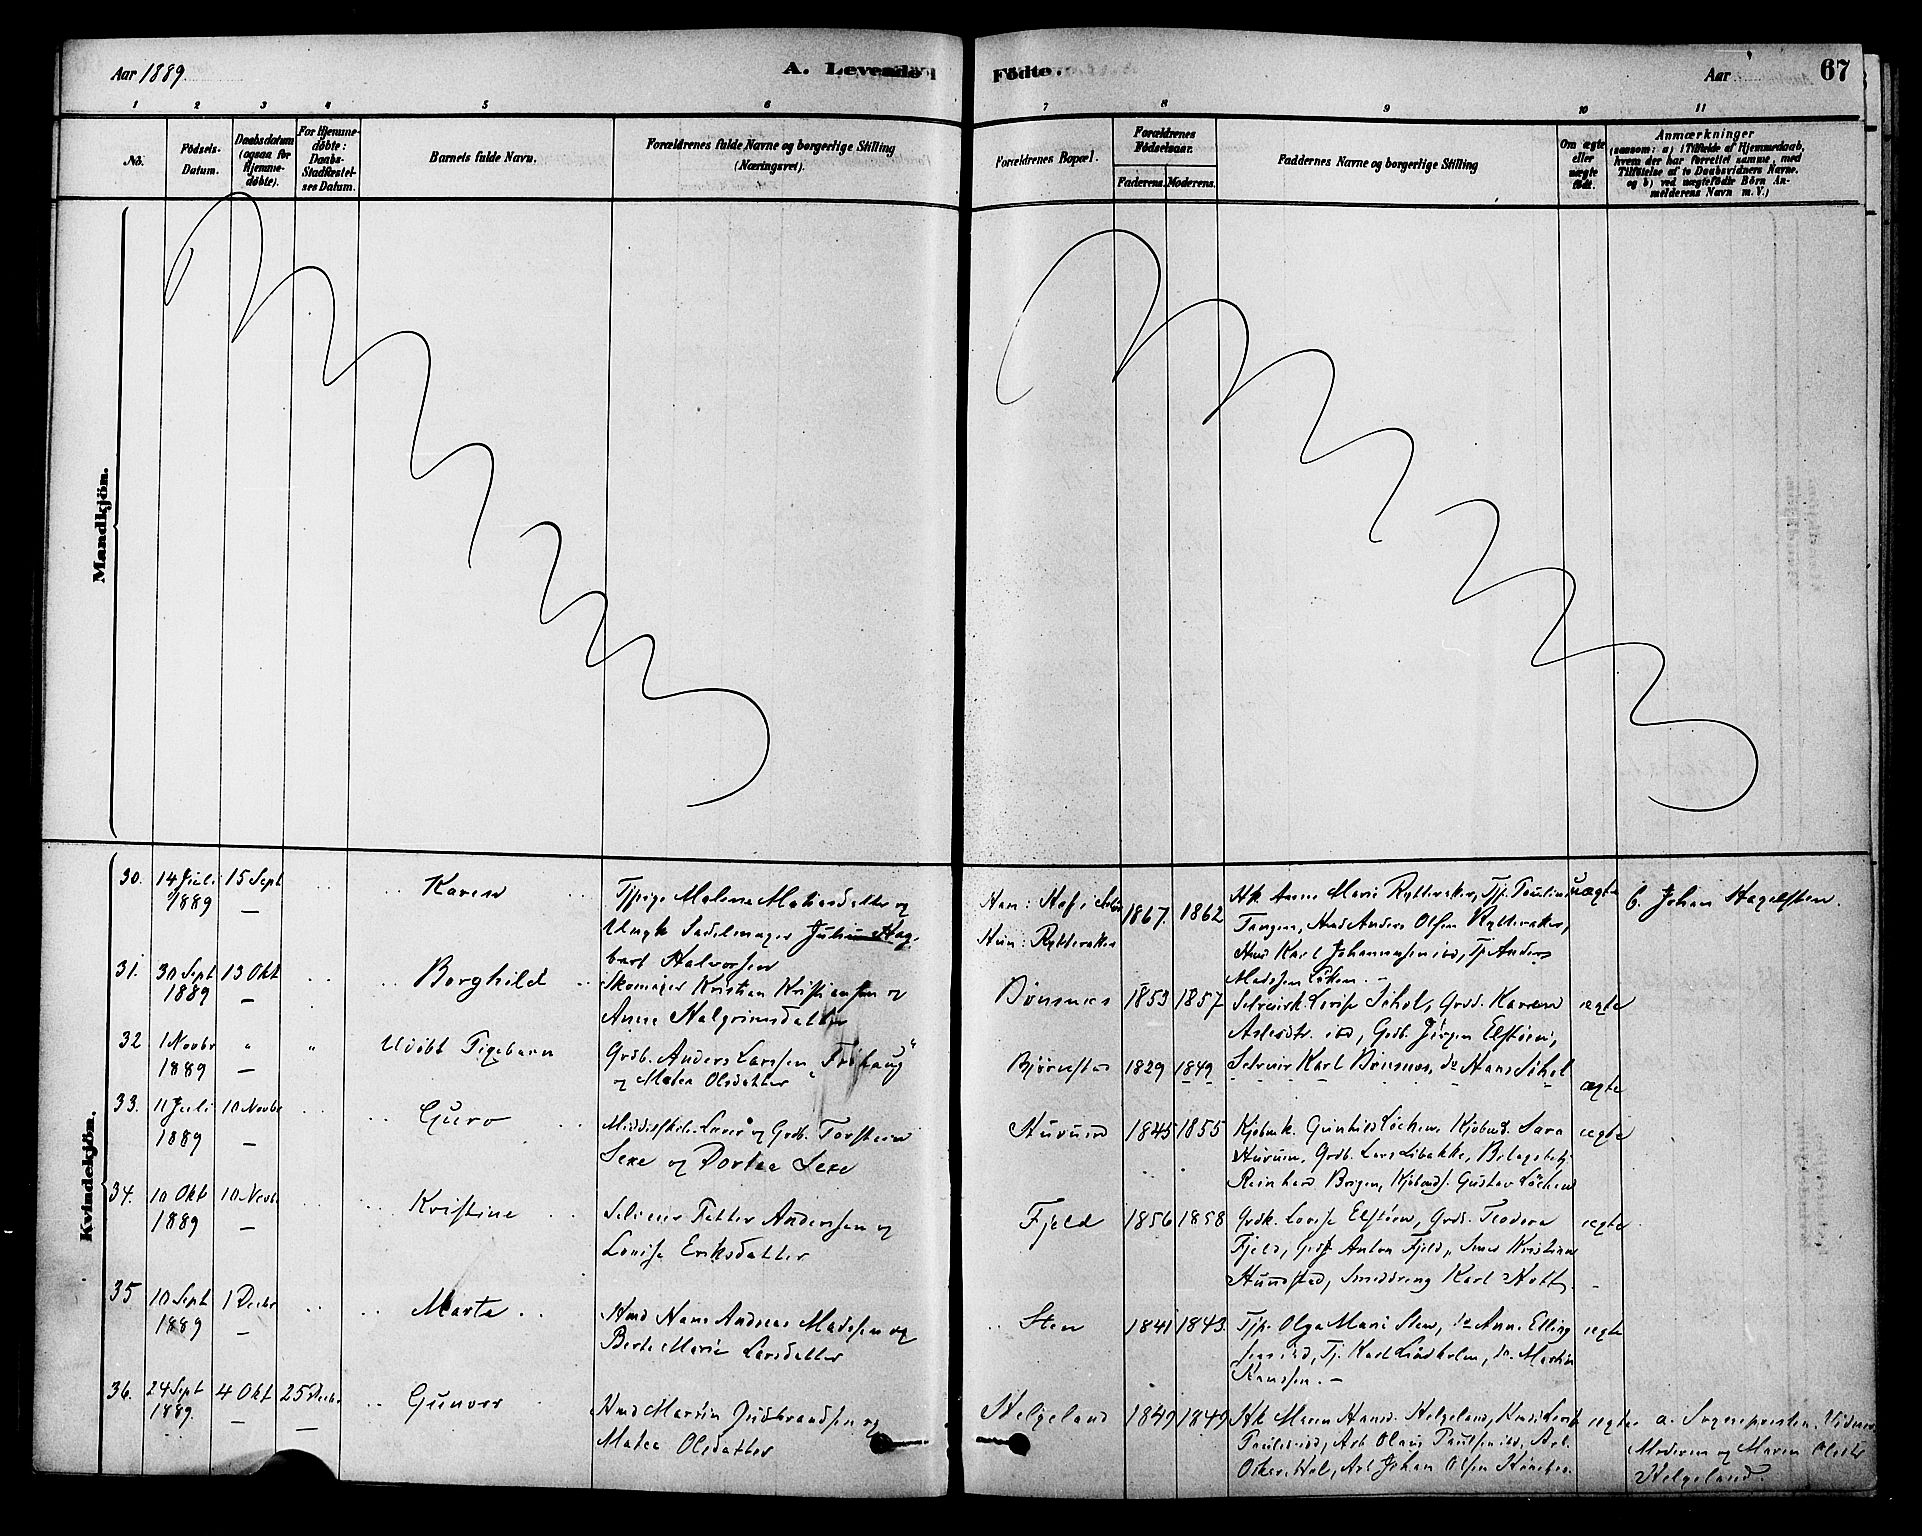 Aar 1889.
A. Levende
Födte.
Aar
67
1 2 3 4 5 6 7 8 9 10 11
No.
Födsels-
Datum.
Daabsdatum
(ogsaa for
Hjemme-
døbte).
For Hjemme-
døbte:
Daabs-
Stadfæstel-
ses Datum.
Barnets fulde Navn.
Forældrenes fulde Navne og borgerlige Stilling
(Næringsvei).
Forældrenes Bopæl.
Forældrenes
Födselsaar.
Faderens. Moderens.
Faddernes Navne og borgerlige Stilling
Om ægte
eller
uægte
födt.
Anmærkninger
(saasom: a) i Tilfælde af Hjemmedaab,
hvem der har forrettet samme, med
Tilföielse af to Daabsvidners Navne.
og b) ved uægtefödte Börn An-
melderens Navn m. V.)
Mandkjön.
Kvindekjön.
30. 14 Juli 15 Sept
1889 —
Karen
Tjpige Malene Matisdatter og
Ungk Sadelmager Julius Hag-
bart Halvorsen
Han: Hof i
Hun: Rytteraker
1867. 1862
Hk Anne Marie Rytteraker, Tjp. Pauline
Tangen, Hmd Anders Olsen Rytteraker,
Hmd Karl Johannessen ibd, Tj. Anders
Madssen
uægte
b. Johan Hagelsten.
31. 30 Sept 13 Okt
1889 —
Borghild
Skomager Kristian Kristiansen og
Anne Halgrimsdatter
Bönsnes 1853 1857
Selveierk. Lovise Sihol, Grdb. Karen
Aslesdtr. ibd, Grdb. Jörgen Elstöen,
ægte
32 1 Novbr " "
1889 —
Udöbt Pigebarn
Grdb. Anders Larssen "Fröhaug"
og Matea Olsdatter
Björnstad 1829 1849
Selveier Karl Bönsnes, do Hans Sihol
ægte
33. 11 Juli 10 Novbr
1889 —
Guro
og Grdb. Torstein
Sexe og Dortea Sexe
Hurum 1845 1855
Kjöbmk. Gunhild Löchen, Kjöbmd. Sara
Hurum, Grdb. Lars Libakke,
ReinhardBorgen, Kjöbmd. Gustav Löchen
ægte
34. 10 Okt 10 Novbr
1889 —
Kristine
Selveier Petter Anderssen og
Lovise Eriksdatter
Fjeld 1856 1858
Grdk. Lovise Elstöen, Grdd. Teodora
Fjeld, Grds Anton Fjeld, Smed Kristian
Hundstad, Smeddreng Karl Hott.
ægte
35 10 Sept 1 Decbr
1889 —
Marte
Hmd Hans Andreas Madssen og
Berte Marie Larsdatter
Sten 1841 1843.
Tjp. Olga Marie Sten, do Anne Elling
sen ibd, Tj. Karl Lindholm, do Martin
Hanssen. —
ægte
36. 24 Sept 4 Okt 25 Decbr
1889. — —
Gunvor
Hmd Martin Gudbrandsen og
Matea Olsdatter
Helgeland 1849 1849
Hk Maren Hansd. Helgeland,
Paulsen ibd, Arb Olaus Paulsen ibd, Arb.
Oskar Hol, Arb Johan Olsen
ægte
a. Sognepresten. Vidner
Moderen og Maren Olsdtr
Helgeland.